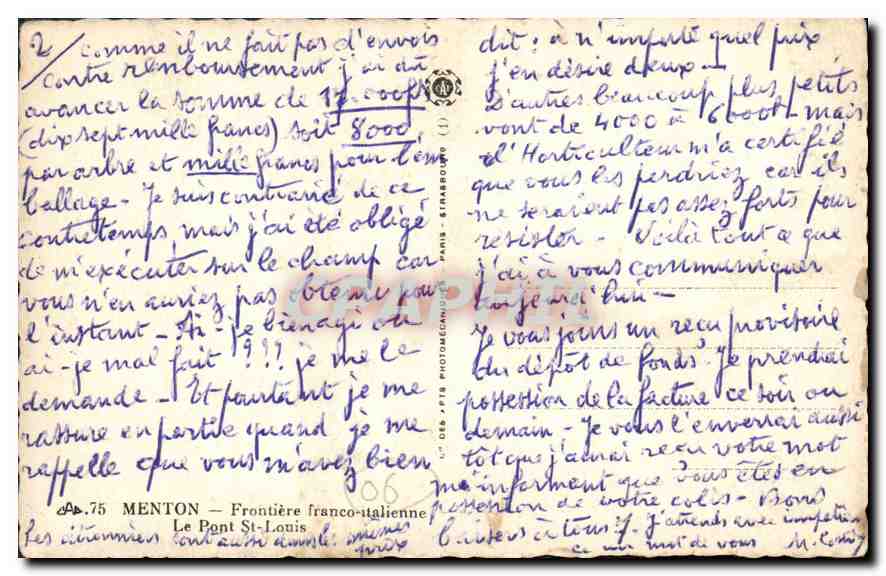 2/ comme il ne fait pas d'envois
contre remboursement j'ai dû
avancer la somme de 17.000frs
(dix sept mille francs) soit 8000
par arbre et mille francs pour l'em
ballage - Je suis contrarié de ce
contretemps, mais j'ai été obligé
de m'exécuter sur le champ car
vous n'en auriez pas obtenu pour
l'instant - Ai-je bien agi ou
ai-je mal fait ??? je me le
demande - Et pourtant je me
rassure en partie quand je me
rappelle que vous m'avez bien
dit : à n'importe quel prix
j'en désire deux -
D'autres beaucoup plus petits
vont de 4000 à 6000f - mais
l'Horticulteur m'a certifié
que vous les perdriez car ils
ne seraient pas assez forts pour
résister - Voilà tout ce que
j'ai à vous communiquer
aujourd'hui -
Je vous joins un reçu provisoire
du dépôt de fonds. Je prendrai
possession de la facture ce soir ou
demain - Je vous l'enverrai aussi
tôt que j'aurai reçu votre mot
m'informant que vous êtes en
possession de votre colis - Bons
baisers à tous 7. j'attends avec impatien
ce un mot de vous M.
STRASBOURG (1)
PARIS
PHOTOMÉCANIQUES
CAP
CPAPHIL
106
.75 MENTON — Frontière franco-italienne
Le Pont St-Louis
Les citronniers sont aussi dans les mêmes
prix